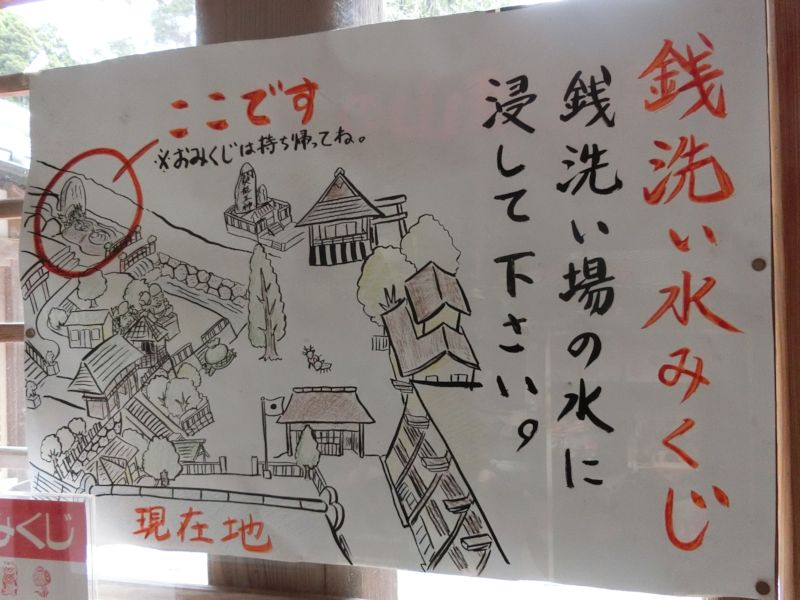 銭洗い水みくじ
銭洗い場の水に
浸して下さい。
ここです
※おみくじは持ち帰ってね。
現在地
みくじ